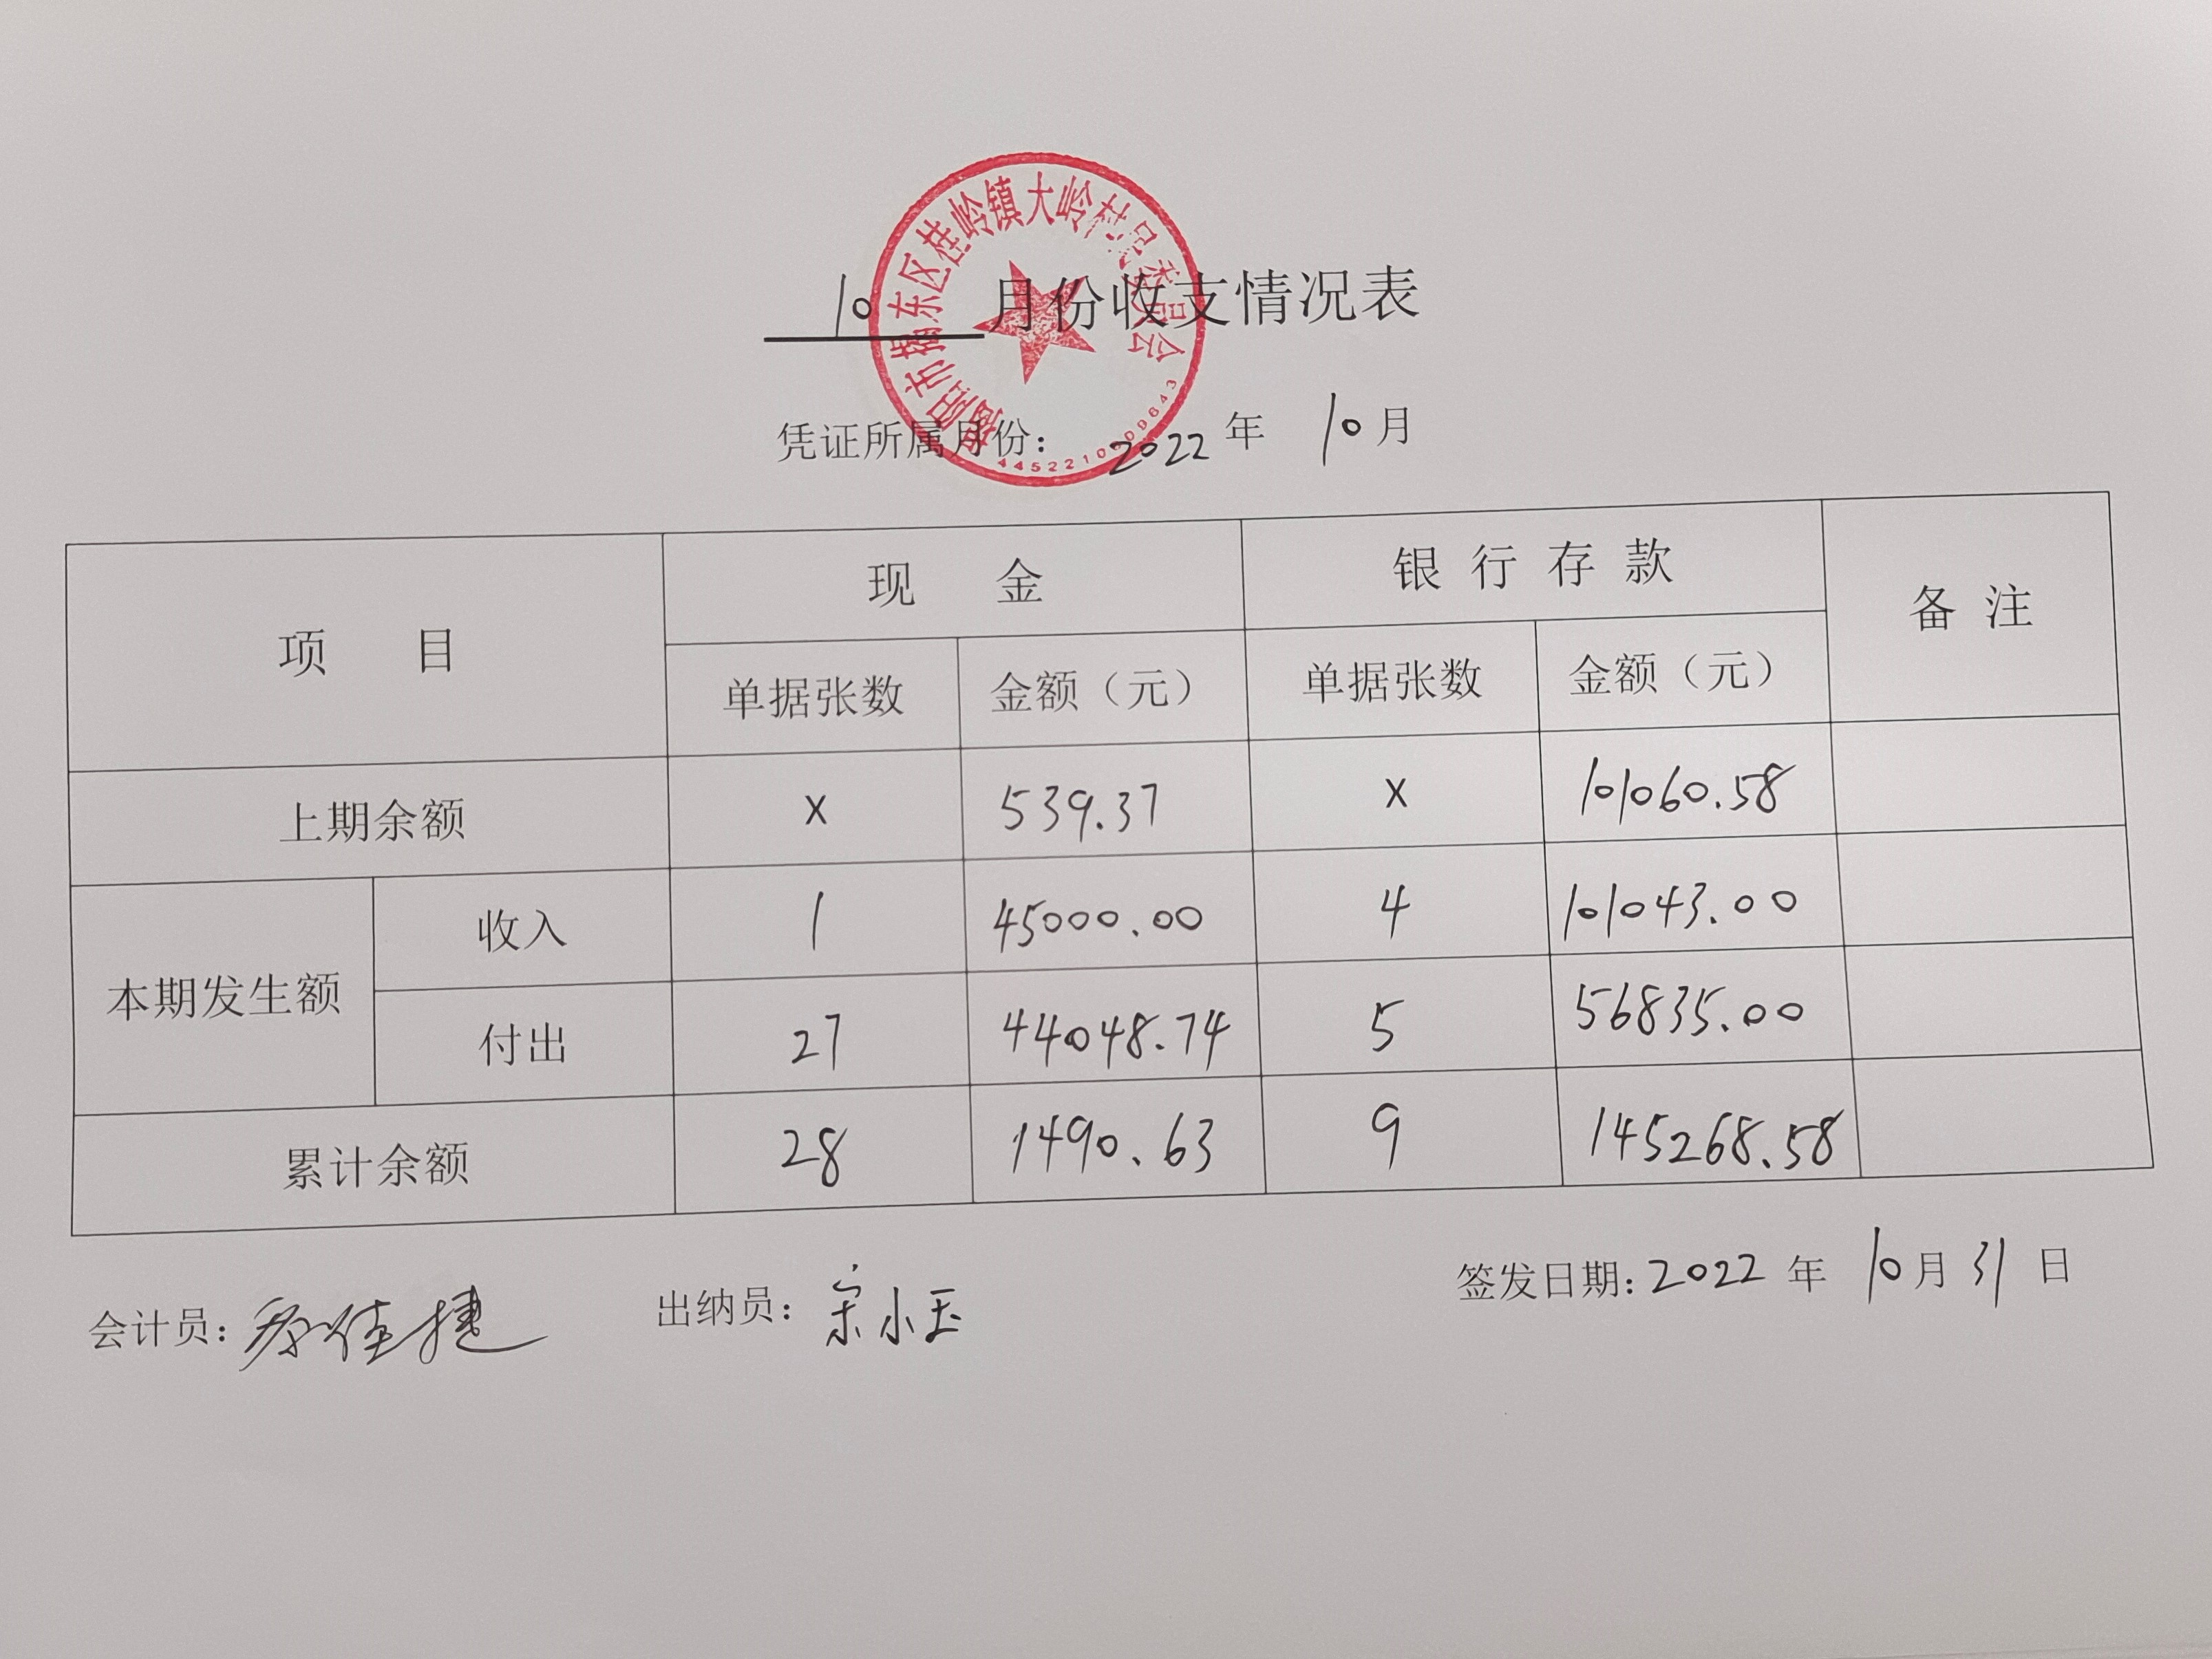 揭阳市揭东区桂岭镇大岭村民委员会
10 月份收支情况表
凭证所属月份: 2022 年 10 月
项 目 现 金 银 行 存 款 备 注
单据张数 金额（元） 单据张数 金额（元）
上期余额 X 539.37 X 101060.58
本期发生额 收入 1 45000.00 4 101043.00
付出 27 44048.74 5 56835.00
累计余额 28 1490.63 9 145268.58
会计员: 佳捷 出纳员: 宋小玉 签发日期: 2022 年 10 月 31 日